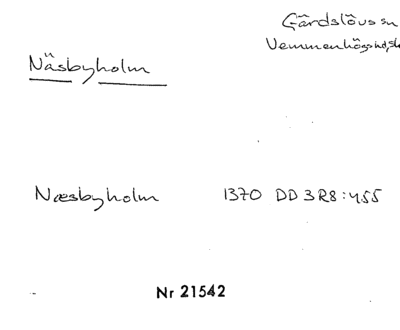 Gärdslövs sn
Vemmenhögs hd, sk
Näsbyholm
Næsbyholm 1370 DD 3R8:455
Nr 21542